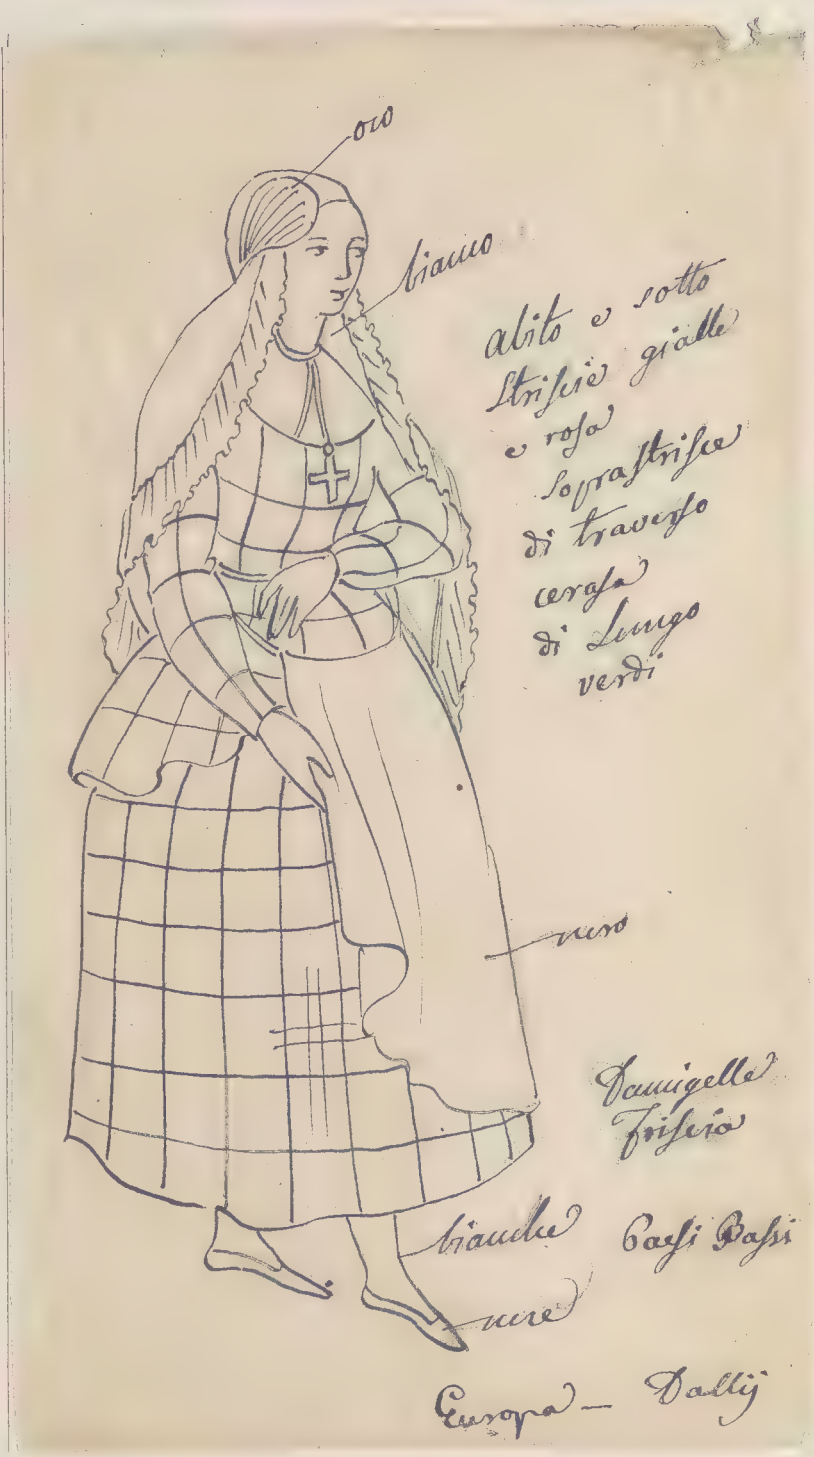 oro
bianco
abito e sotto
striscie gialle
e rosa
soprastrisce
di traverso
cerasa
di Lungo
verdi
nero
Damigelle
Friscia
bianche
Paesi Bassi
nere
Europa — Dallij